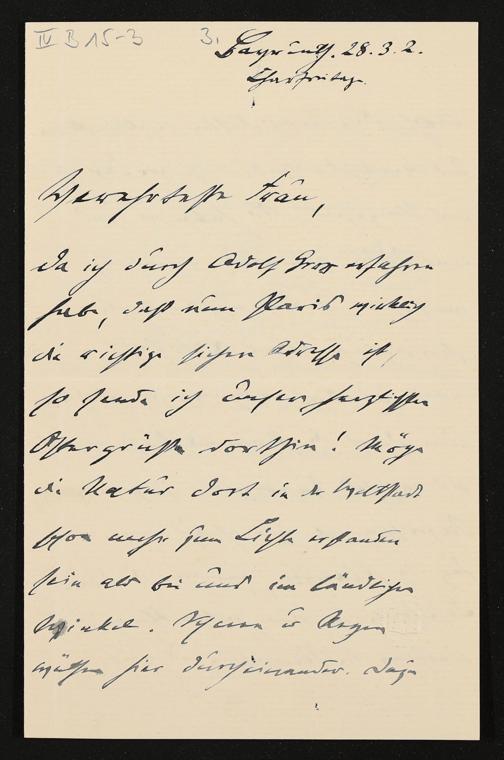 IV B 15-3 3. Bayreuth. 28.3.2.
Charfreitag.
Verehrteste Frau,
da ich durch Adolf Gross erfahren
habe, daß nun Paris wirklich
die richtige sichere Adresse ist,
so sende ich unsere herzlichsten
Ostergrüße dorthin! Möge
die Natur dort in der Weltstadt
schon mehr zum Lichte erstanden
sein als bei uns im ländlichen
Winkel. Schnee u Regen
wüthen hier durcheinander. Dazu